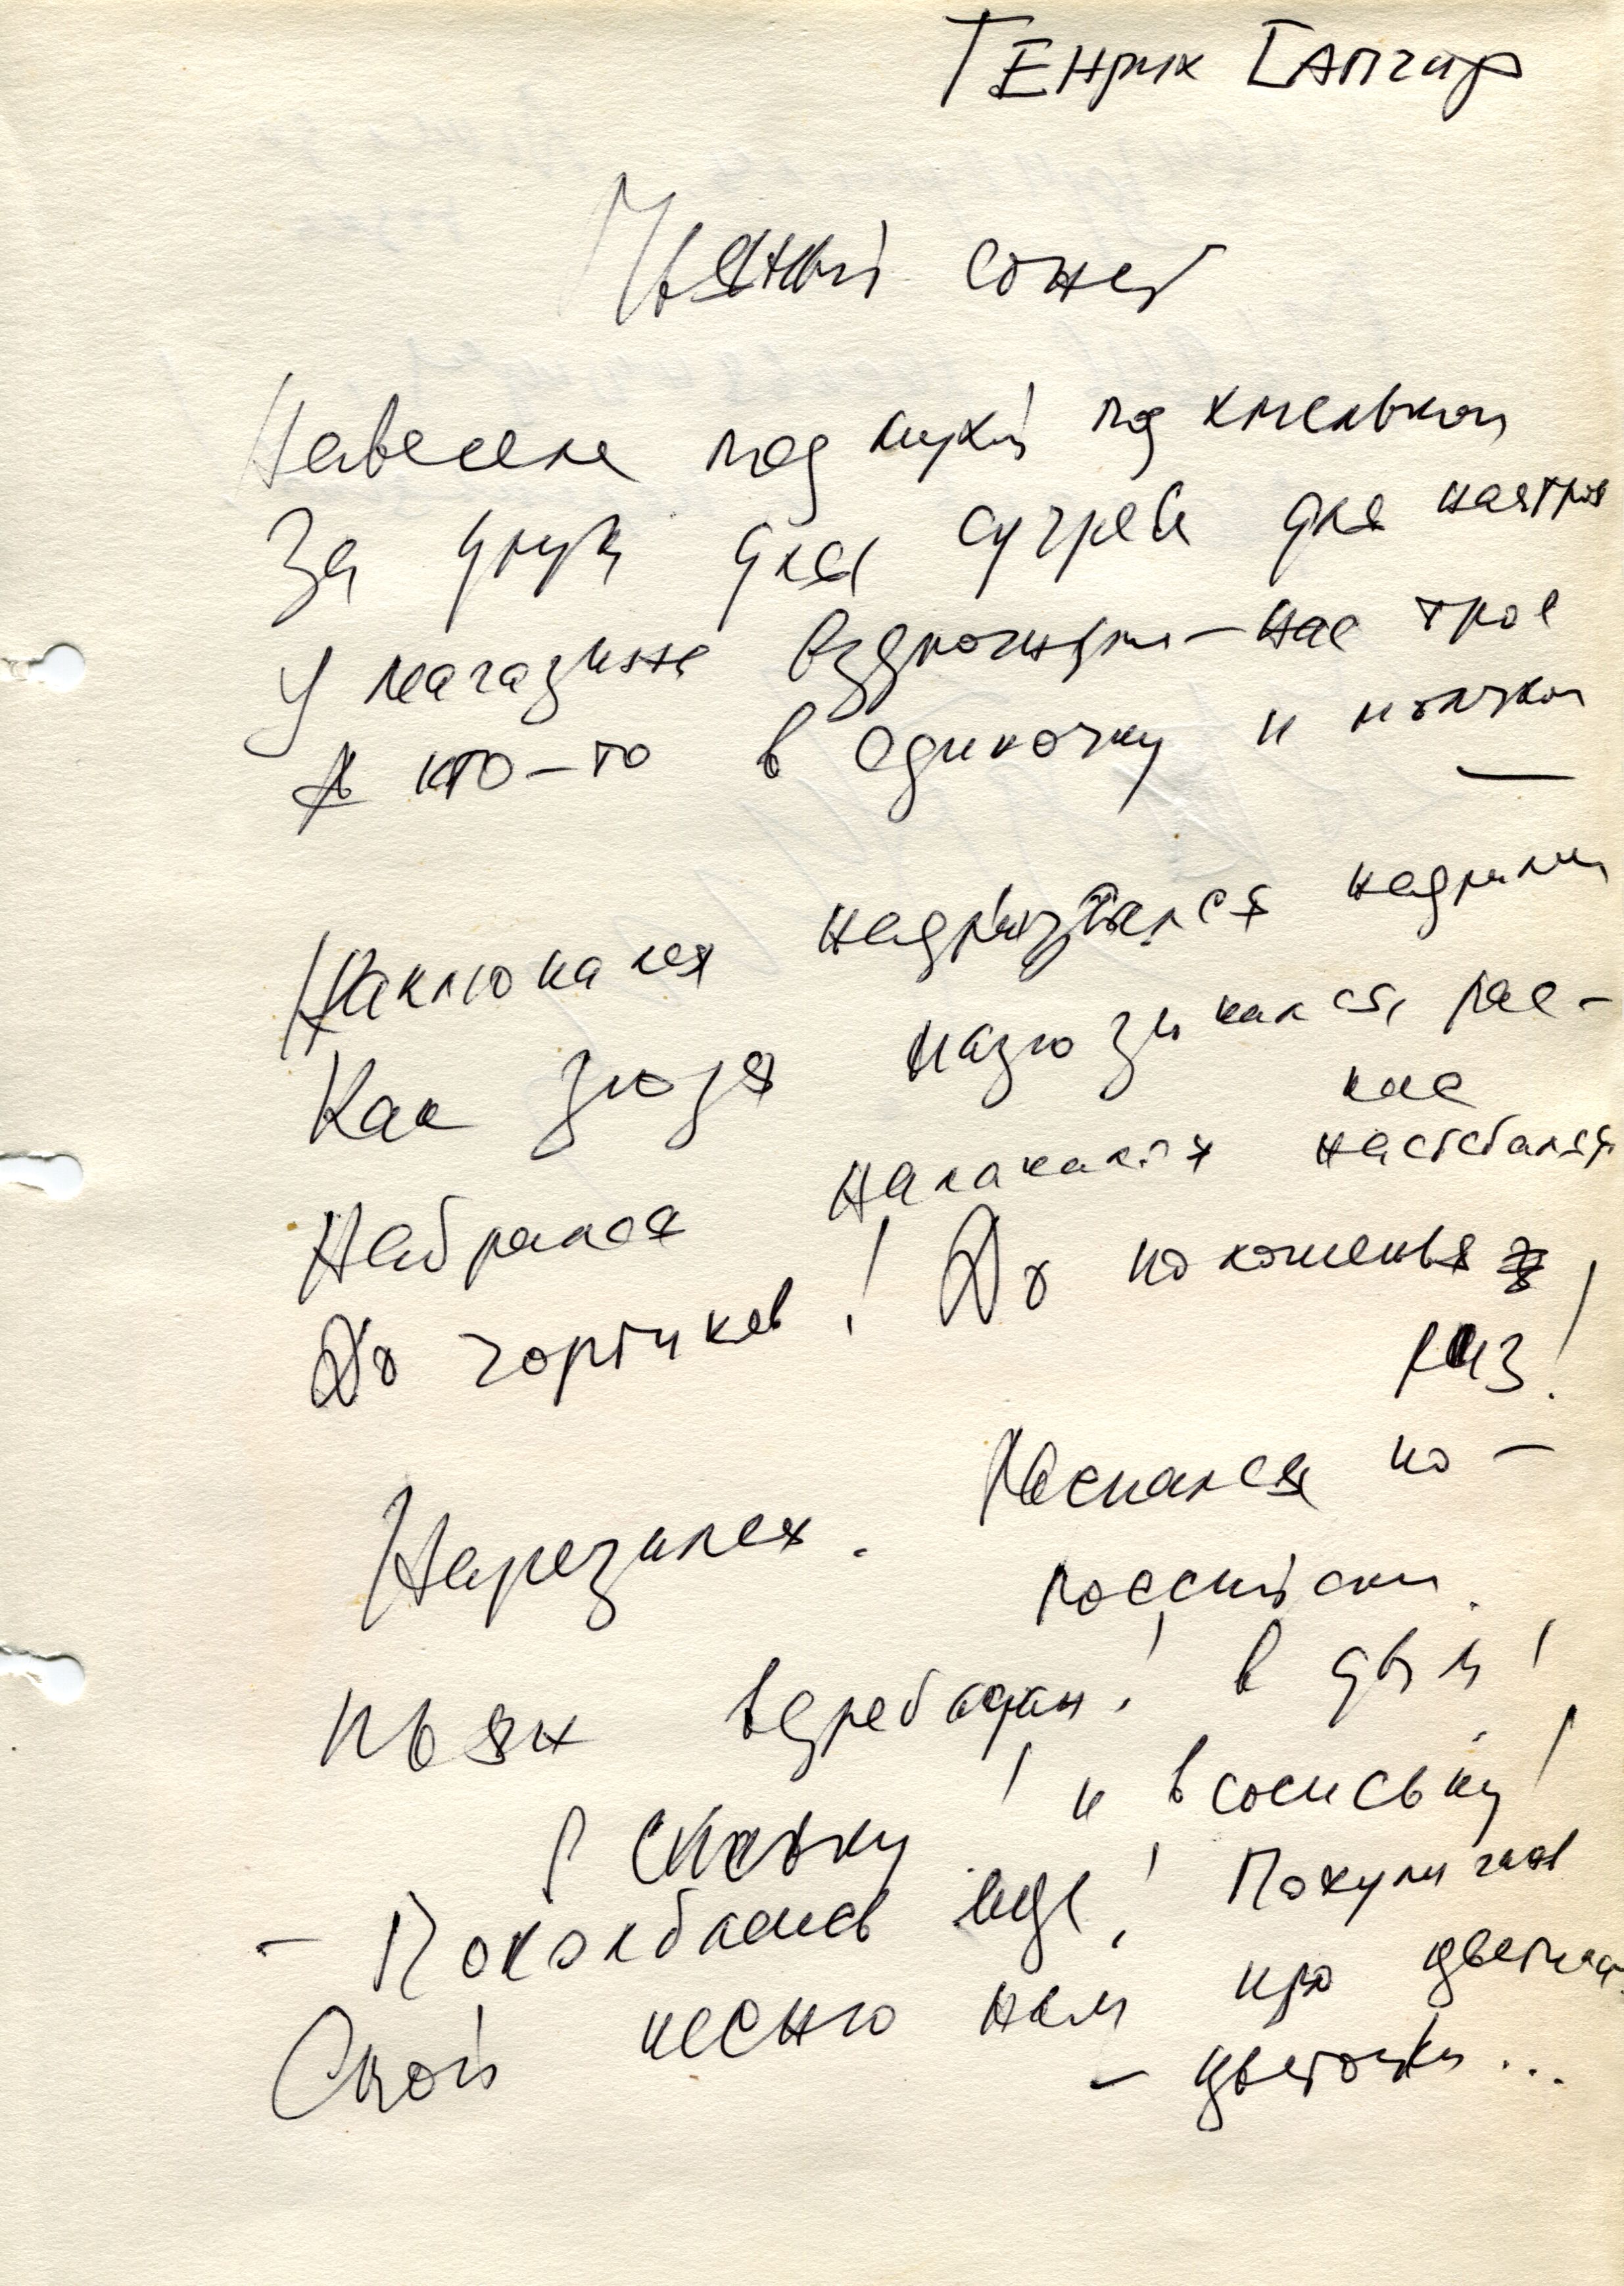 Генрих Сапгир
Пьяный сонет
Навеселе под мухой под хмельком
За друга для сугрева для настроя
У магазина вздрогнули – нас трое
А кто-то в одиночку и молчком –
Наклюкался надрызгался надрались
Как зюзя назюзюкался, рас-
кис
Набрался налакался настебался
До чортиков! До положенья
риз!
Нарезался. Распался по-
российски.
Пьян вдребадан! в дым!
В стельку! и в сосиську!
– Поколбасись еще! Похулигань
Спой песню нам про цветики
– цветочки...